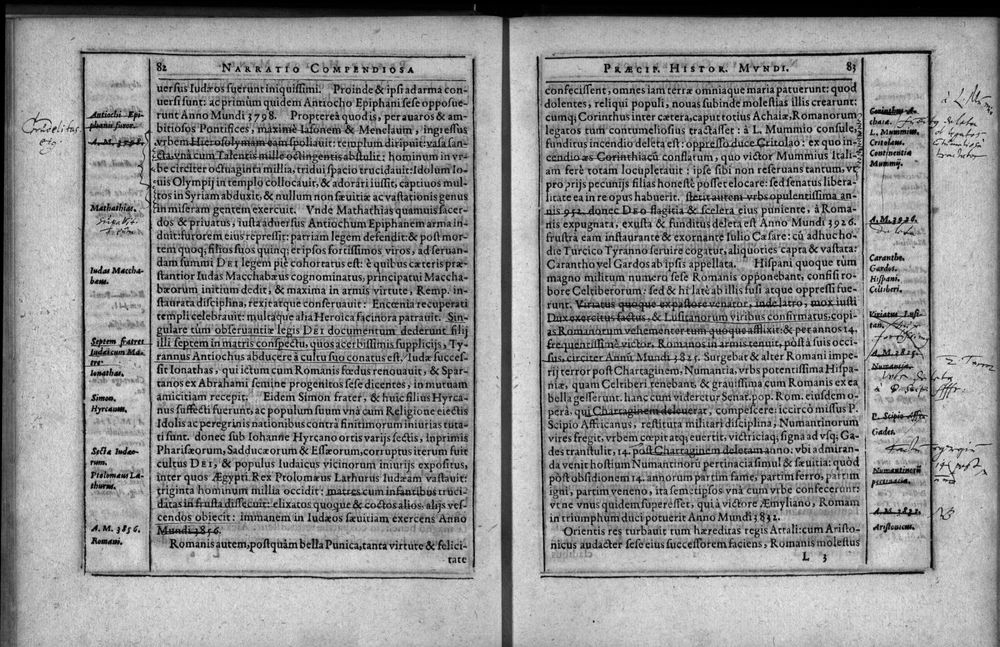 82 NARRATIO COMPENDIOSA
uersus Iudæos fuerunt iniquissimi. Proinde & ipsi ad arma con-
uersi sunt: ac primum quidem Antiocho Epiphani sese opposue-
runt Anno Mundi 3798. Propterea quod is, per auaros & am-
bitiosos Pontifices, maximè Iasonem & Menelaum, ingressus
vrbem Hierosolymam eam spoliauit: templum diripuit: vasa san-
cta, vnà cum Talentis mille octingentis abstulit: hominum in vr-
be circiter octuaginta millia, tridui spacio trucidauit: Idolum Io-
uis Olympij in templo collocauit, & adorari iussit, captiuos mul-
tos in Syriam abduxit, & nullum non sæuitiæ ac vastationis genus
in miseram gentem exercuit. Vnde Mathathias quamuis sacer-
dos & priuatus, iusta aduersus Antiochum Epiphanem arma in-
duit: furorem eius repressit: patriam legem defendit: & post mor-
tem quoq; filios suos quinq; eripsos fortissimos viros, ad seruan-
dam summi DEI legem piè cohortatus est: è quibus cæteris præ-
stantior Iudas Macchabæus cognominatus, principatui Maccha-
bæorum initium dedit, & maxima in armis virtute, Remp. in-
staurata disciplina, rexit atque conseruauit: Encœnia recuperati
templi celebrauit: multaque alia Heroica facinora patrauit. Sin-
gulare tùm obseruantiæ legis DEI documentum dederunt filij
illi septem in matris conspectu, quos acerbissimis supplicijs, Ty-
rannus Antiochus abducere à cultu suo conatus est. Iudæ succes-
sit Ionathas, qui ictum cum Romanis fœdus renouauit, & Spar-
tanos ex Abrahami semine progenitos sese dicentes, in mutuam
amicitiam recepit. Eidem Simon frater, & huic filius Hyrca-
nus suffecti fuerunt, ac populum suum vnà cum Religione eiectis
Idolis ac peregrinis nationibus contra finitimorum iniurias tuta-
ti sunt. donec sub Iohanne Hyrcano ortis varijs sectis, inprimis
Pharisæorum, Sadducæorum & Essæorum, corruptus iterum fuit
cultus DEI, & populus Iudaicus vicinorum iniurijs expositus,
inter quos Ægypti Rex Ptolomæus Larhurus Iudæam vastauit:
triginta hominum millia occidit: matres cum infantibus truci-
datas in frusta dissecuit: elixatos quoque & coctos alios, alijs ves-
cendos obiecit: immanem in Iudæos sæuitiam exercens Anno
Mundi 3856.
Romanis autem, postquàm bella Punica, tanta virtute & felici-
tate
Antiochi Epi-
phanis furor.
A. M. 3798.
Mathathias.
Iudas Maccha-
bæus.
Septem fratres
Iudaicum Ma-
tre.
Ionathas.
Simon.
Hyrcanus.
Secta Iudæo-
rum.
Ptolomæus La-
thurus.
A. M. 3856.
Romani.
PRÆCIP. HISTOR. MVNDI. 83
confecissent, omnes iam terræ omniaque maria patuerunt: quod
dolentes, reliqui populi, nouas subinde molestias illis crearunt:
cumq; Corinthus inter cætera, caput totius Achaiæ, Romanorum
legatos tum contumeliosius tractasset: à L. Mummio consule,
funditus incendio deleta est: oppresso duce Critolao: ex quo in-
cendio æs Corinthiacũ conflatum, quo victor Mummius Itali-
am ferè totam locupletauit: ipse sibi non reseruans tantum, vt
proprijs pecunijs filias honestè posset elocare: sed senatus libera-
litate ea in re opus habuerit. Stetit autem vrbs opulentissima an-
nis 952. donec DEO flagitia & scelera eius puniente, à Roma-
nis expugnata, exusta & funditus deleta est Anno Mundi 3926.
frustra eam instaurante & exornante Iulio Cæsare: cũ adhuc ho-
die Turcico Tyranno seruire cogatur, aliquoties capta & vastata:
Carantho vel Gardos ab ipsis appellata. Hispani quoque tùm
magno militum numero sese Romanis opponebant, confisi ro-
bore Celtiberorum: sed & hi latè ab illis fusi atque oppressi fue-
runt. Viriatus quoque ex pastore venator, inde latro, mox iusti
Dux exercitus factus, & Lusitanorum viribus confirmatus, copi-
as Romanorum vehementer tum quoque afflixit: & per annos 14.
frequentissimè victor, Romanos in armis tenuit, pòst à suis occi-
sus, circiter Annũ Mundi 3825. Surgebat & alter Romani impe-
rij terror post Chartaginem, Numantia, vrbs potentissima Hispa-
niæ, quam Celtiberi tenebant, & grauissima cum Romanis ex ea
bella gesserunt. hanc cum videretur Senat. pop. Rom. eiusdem o-
pera, qui Chartaginem deleuerat, compescere: iccircò missus P.
Scipio Affricanus, restituta militari disciplina, Numantinorum
vires fregit, vrbem cœpit atq; euertit, victriciaq; signa ad vsq; Ga-
des transtulit, 14. post Chartaginem deletam anno: vbi admiran-
da venit hostium Numantinorũ pertinacia simul & sæuitia: quòd
post obsidionem 14. annorum partim fame, partim ferro, partim
igni, partim veneno, ita semetipsos vnà cum vrbe confecerunt:
vt ne vnus quidem superesset, quià victore Æmyliano, Romam
in triumphum duci potuerit Anno Mundi 3832.
Orientis res turbauit tum hæreditas regis Attali: cum Aristo-
nicus audacter sese eius successorem faciens, Romanis molestus
L 3
Corinthus A-
chaia.
L. Mummius.
Critolaus.
Continentia
Mummij.
A. M. 3926.
Caranthe.
Gardos.
Hispani.
Celtiberi.
Viriatus Lusi-
tan.
A. M. 3825.
Numantia.
P. Scipio Affr.
Gades.
Numantinorũ
pertinacia.
A. M. 3832.
Aristonicus.